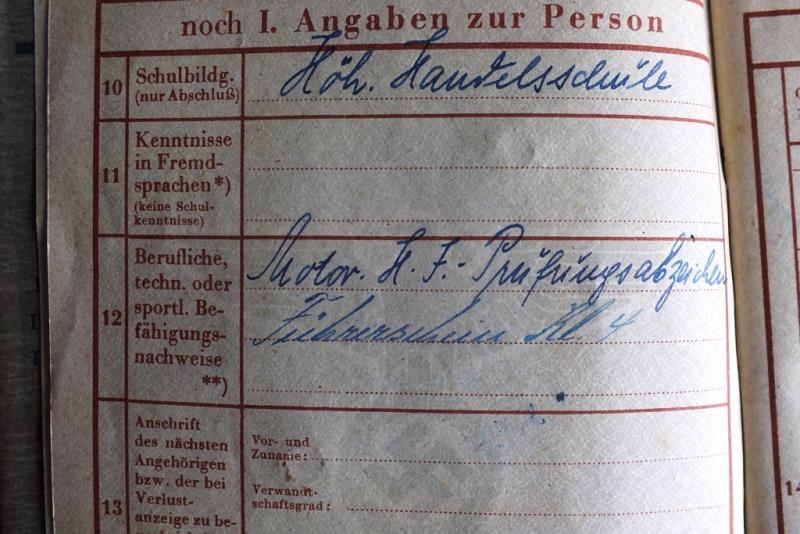 noch I. Angaben zur Person
10 Schulbildg. Höh. Handelsschule
(nur Abschluß)
11 Kenntnisse
in Fremd-
sprachen*)
(keine Schul-
kenntnisse)
12 Berufliche,
techn. oder
sportl. Be-
fähigungs-
nachweise
**)
Motor. H. J.- Prüfungsabzeichen
Führerschein Kl 4
13 Anschrift
des nächsten
Angehörigen
bzw. der bei
Verlust-
anzeige zu be-
Vor- und
Zuname:
Verwandt-
schaftsgrad:
14